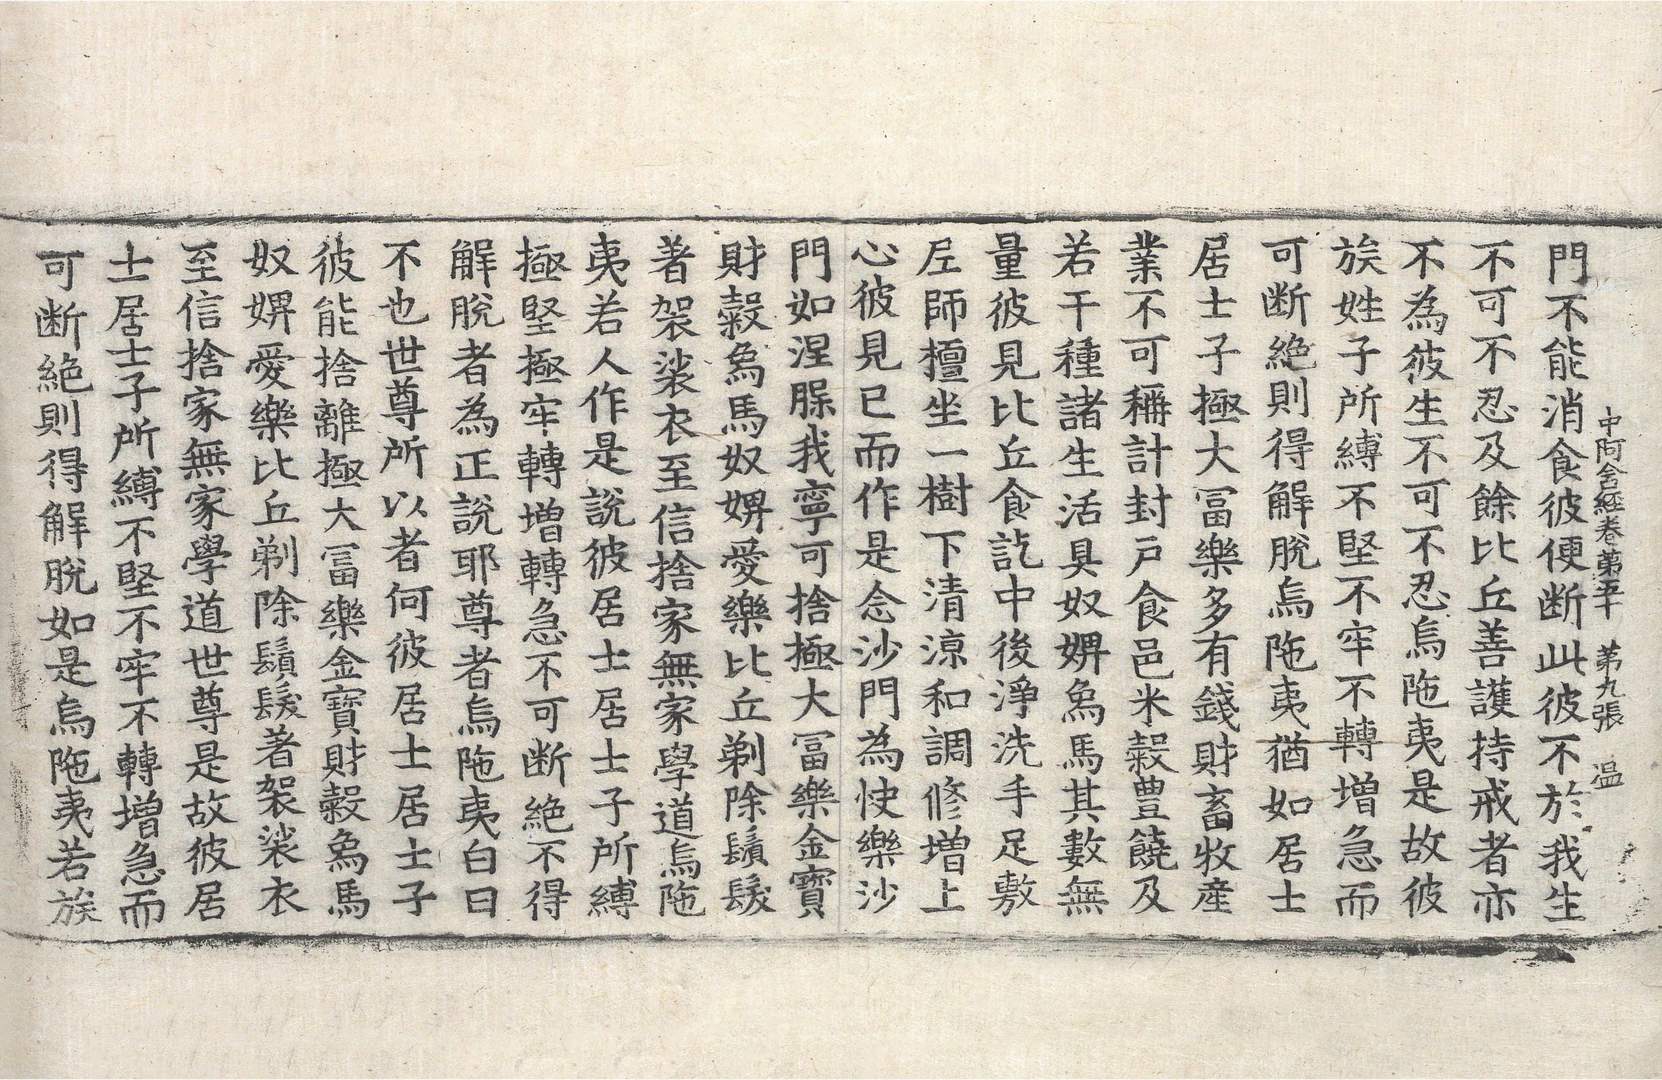 中阿含経卷第五十　第九張　温
門不能消食彼便断此彼不於我生
不可不忍及餘比丘善護持戒者亦
不為彼生不可不忍烏陁夷是故彼
族姓子所縛不堅不牢不轉增急而
可断絶則得解脫烏陁夷猶如居士
居士子極大冨樂多有錢財畜牧産
業不可稱計封戶食邑米糓豊饒及
若干種諸生活具奴婢象馬其數無
量彼見比丘食訖中後淨洗手足敷
㞐師檀坐一樹下清涼和調修增上
心彼見已而作是念沙門為快樂沙
門如涅槃我寧可捨極大冨樂金寶
財糓象馬奴婢愛樂比丘剃除鬚髮
著袈裟衣至信捨家無家學道烏陁
夷若人作是說彼居士居士子所縛
極堅極牢轉増轉急不可断絶不得
解脫者為正說耶尊者烏陁夷白曰
不也世尊所以者何彼居士居士子
彼能捨離極大冨樂金寶財糓象馬
奴婢愛樂比丘剃除鬚髮著袈裟衣
至信捨家無家學道世尊是故彼居
士居士子所縛不堅不牢不轉增急而
可断絶則得解脫如是烏陁夷若族